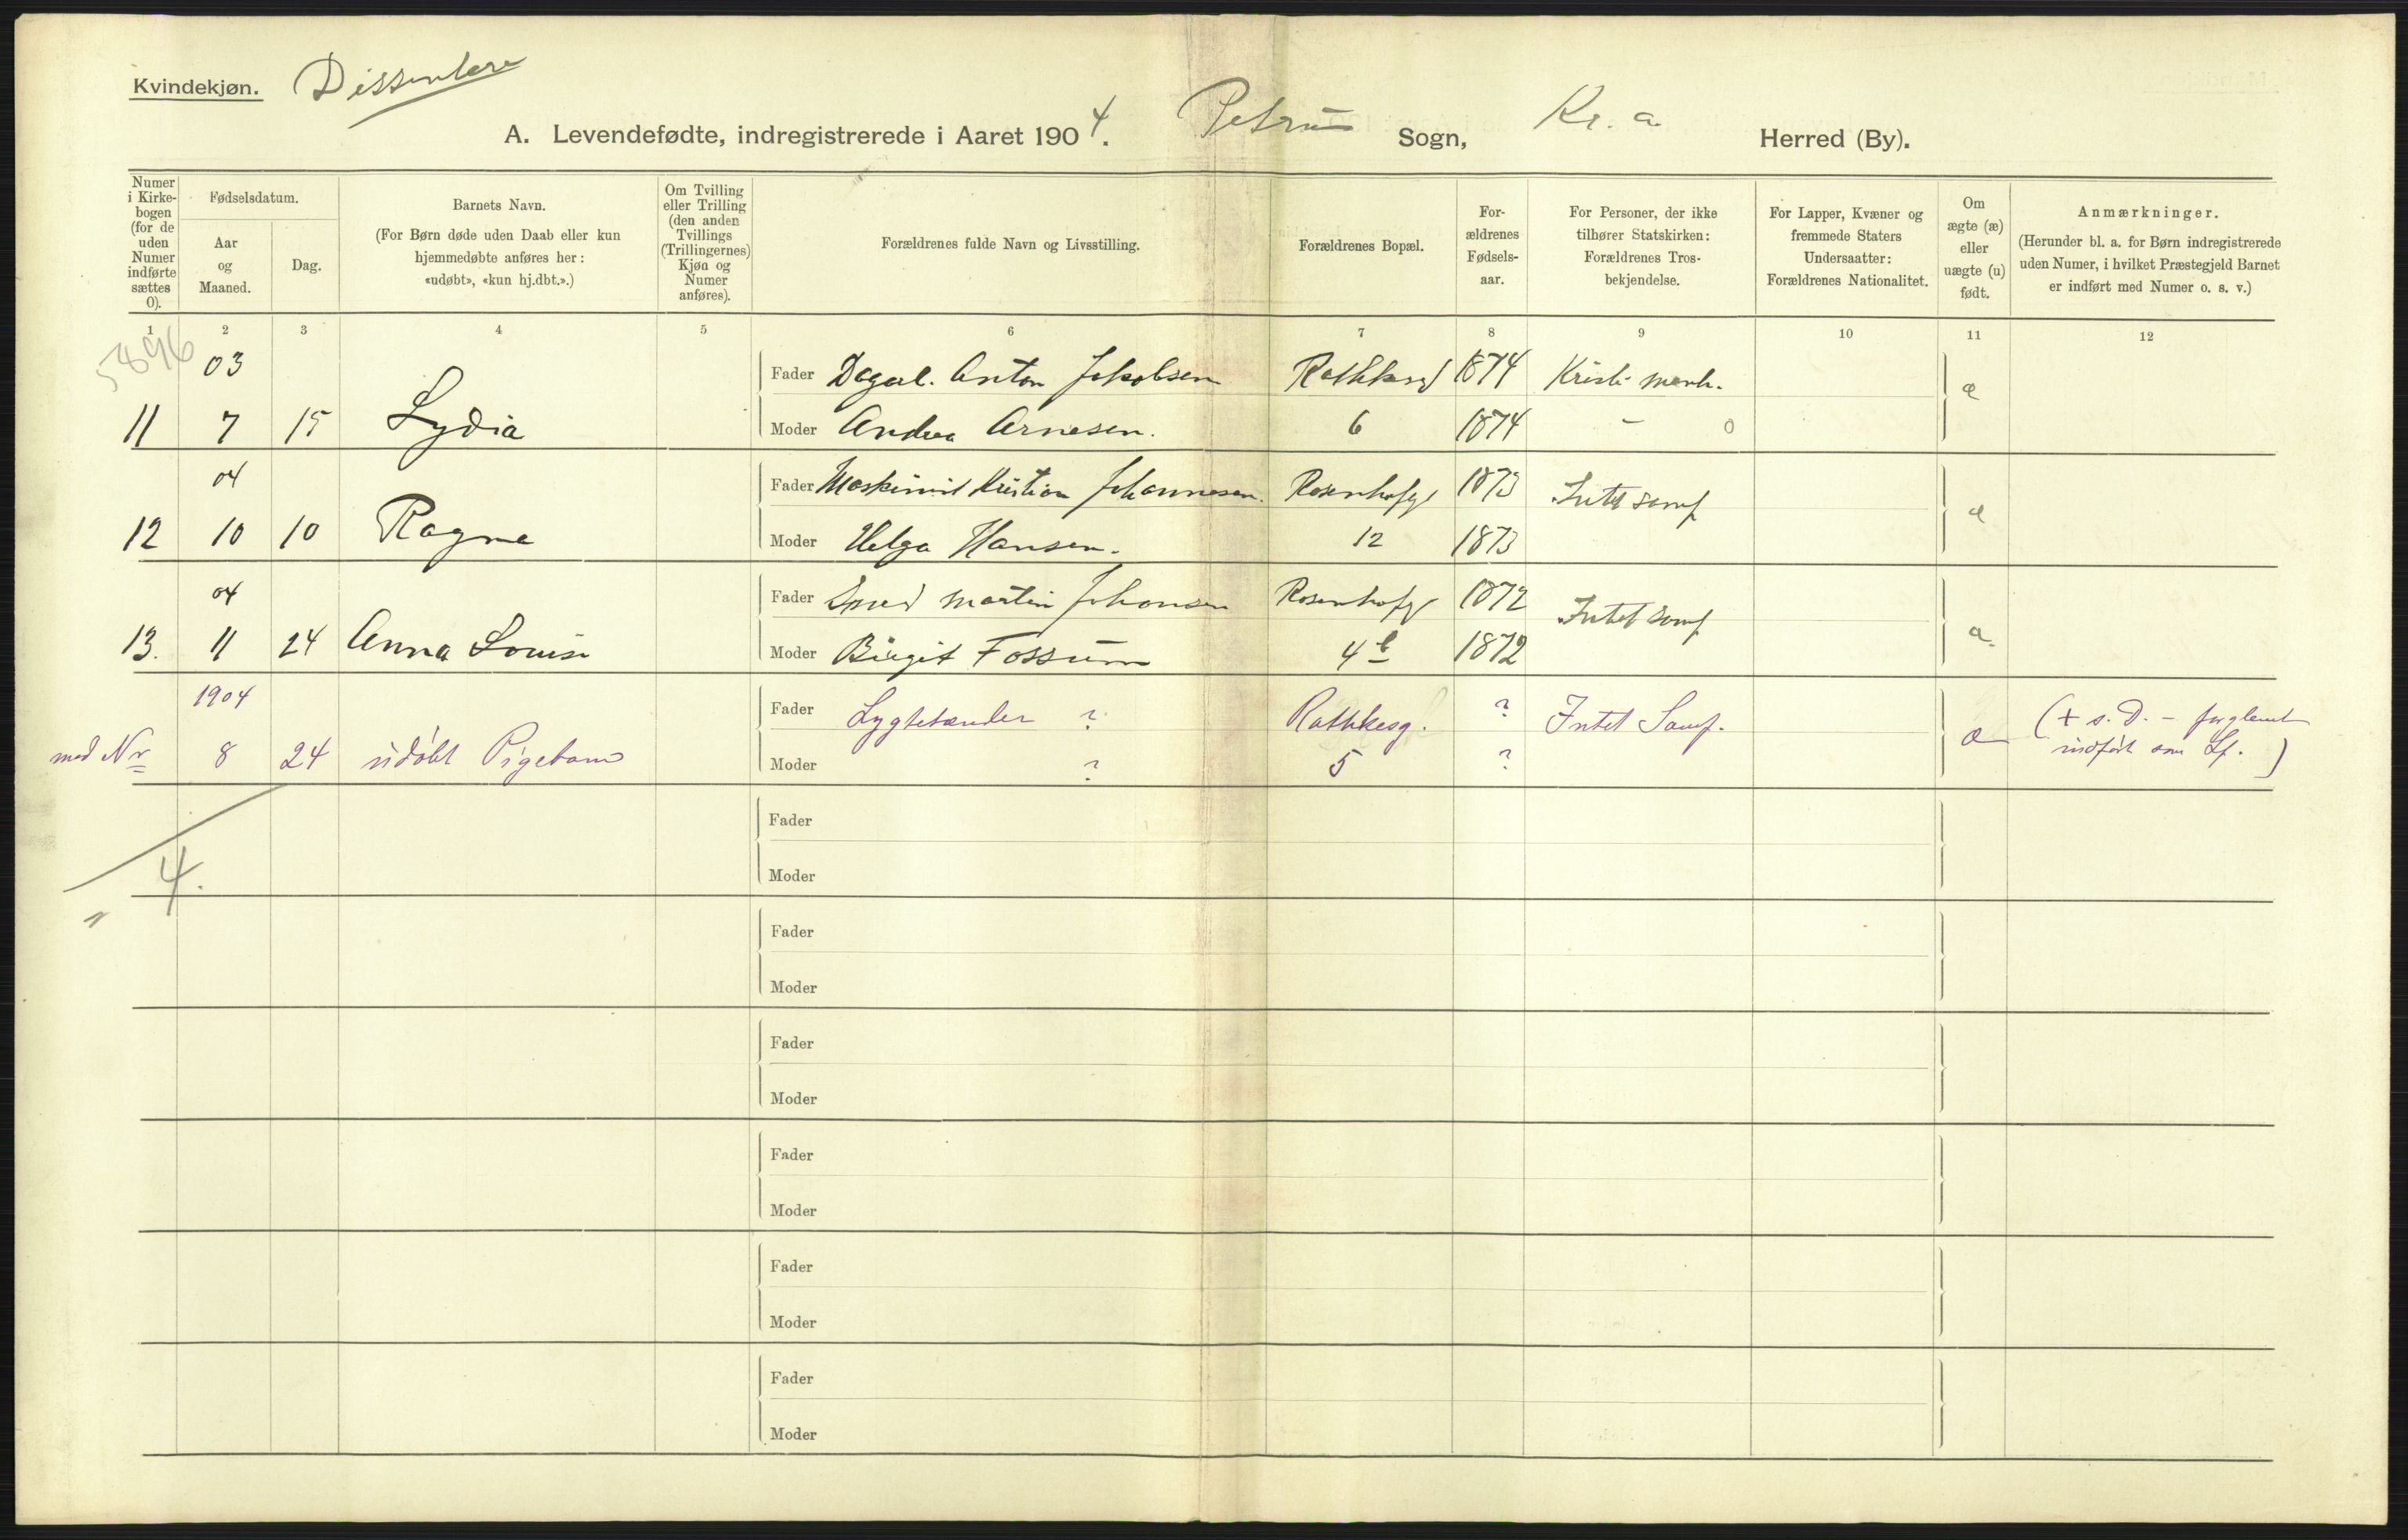 Kvindekjøn. Dissentere
A. Levendefødte, indregistrerede i Aaret 1904. Petrus Sogn, Kr. a. Herred (By).
Numer i Kirkebogen (for de uden Numer indførte sættes 0).
Fødselsdatum.
Aar og Maaned.
Dag.
Barnets Navn.
(For Børn døde uden Daab eller kun hjemmedøbte anføres her: «udøbt», «kun hj.dbt.».)
Om Tvilling eller Trilling (den anden Tvillings (Trillingernes) Kjøn og Numer anføres).
Forældrenes fulde Navn og Livsstilling.
Forældrenes Bopæl.
For-ældrenes Fødsels-aar.
For Personer, der ikke tilhører Statskirken: Forældrenes Tros-bekjendelse.
For Lapper, Kvæner og fremmede Staters Undersaatter: Forældrenes Nationalitet.
Om ægte (æ) eller uægte (u) født.
Anmærkninger.
(Herunder bl. a. for Børn indregistrerede uden Numer, i hvilket Præstegjeld Barnet er indført med Numer o. s. v.)
1 2 3 4 5 6 7 8 9 10 11 12
5896
03 Fader Dagarl. Anton Jakobsen 1874 æ
11 7 15 Lydia Moder Andrea Arnesen. 6 1874 - 0
04 Fader Kristian Johannesen. Rosenhofg 1873 Intet samf æ
12 10 10 Ragna Moder Helga Hansen. 12 1873
04 Fader Smed Martin Johansen Rosenhofg 1872 Intet samf æ
13. 11 24 Anna Louise Moder Birgit Fossum 4b 1872
1904 Fader Lygtetænder ? Rathkesg. ? Intet Samf. æ (+ s. D. - forglemt
med Nr 8 24 udøbt Pigebarn Moder ? 5 ? indført som Lf.)
Fader
4. Moder
Fader
Moder
Fader
Moder
Fader
Moder
Fader
Moder
Fader
Moder